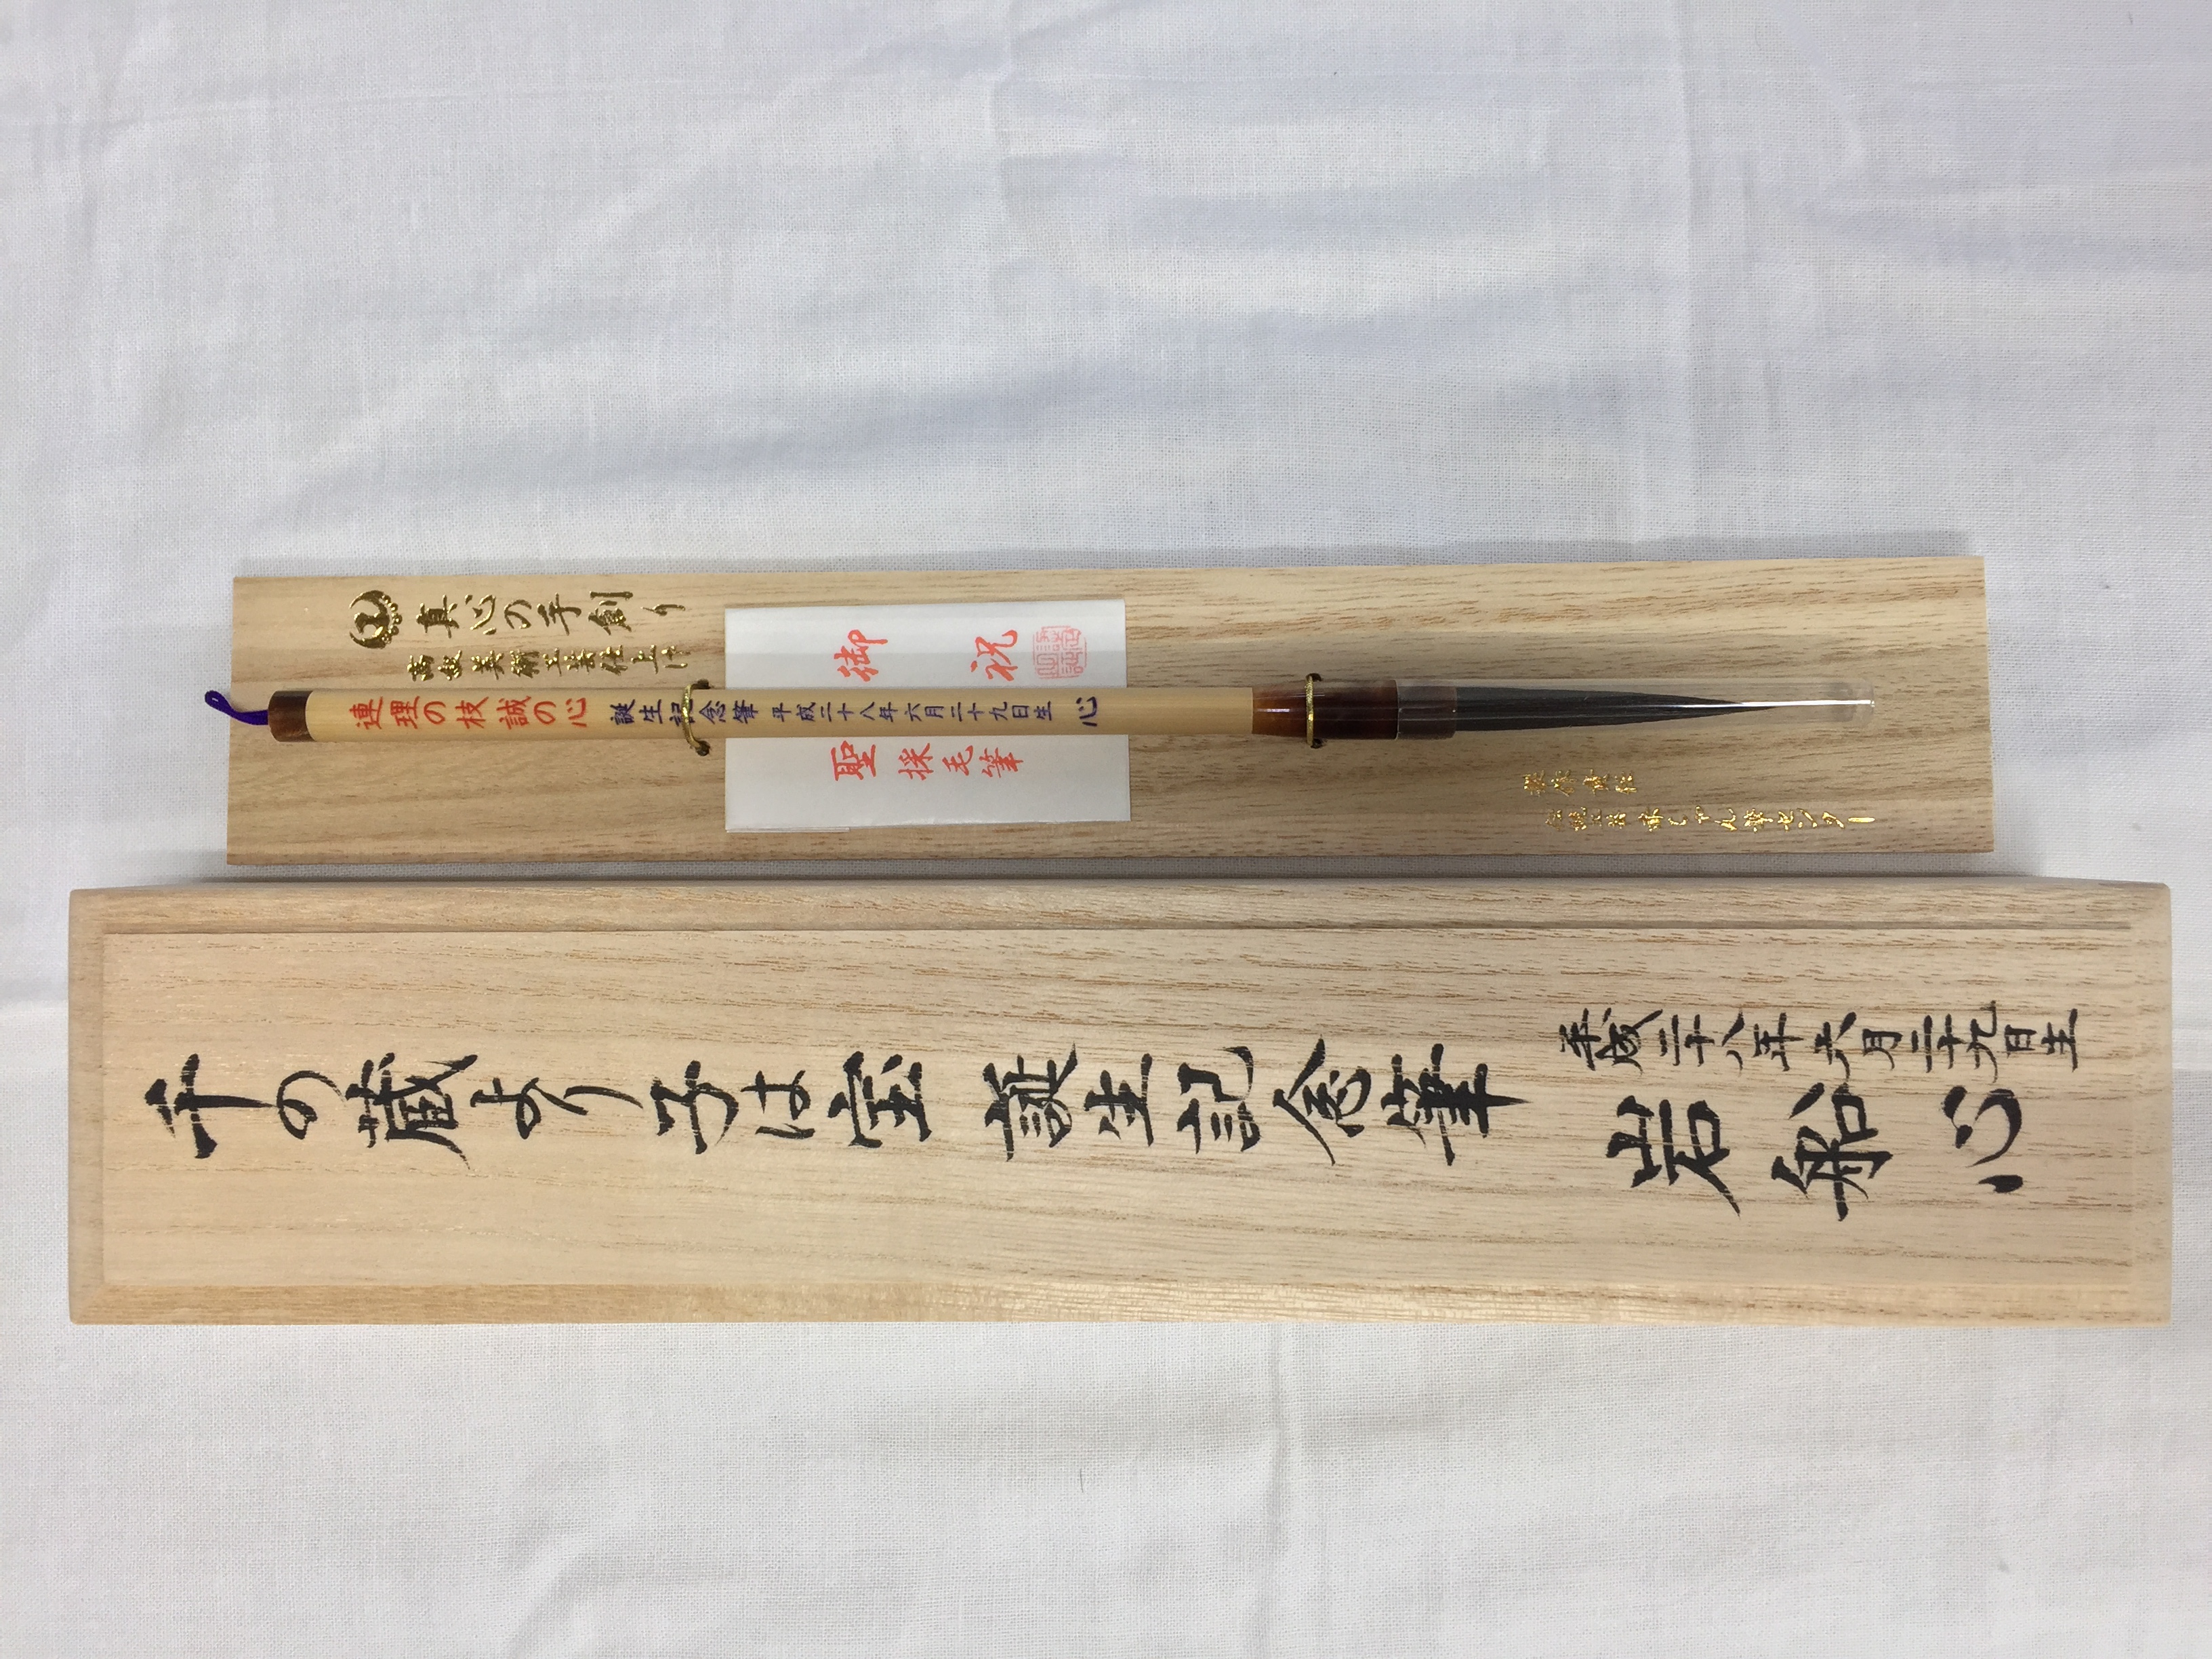 千の蔵より子は宝 誕生記念筆
平成二十八年六月二十九日生
岩船 心
真心の手創り
高級美術工芸仕上げ
連理の枝誠の心 誕生記念筆 平成二十八年六月二十九日生 心
御祝
聖採毛筆
製作責任
伝統工芸 赤ちゃん筆センター